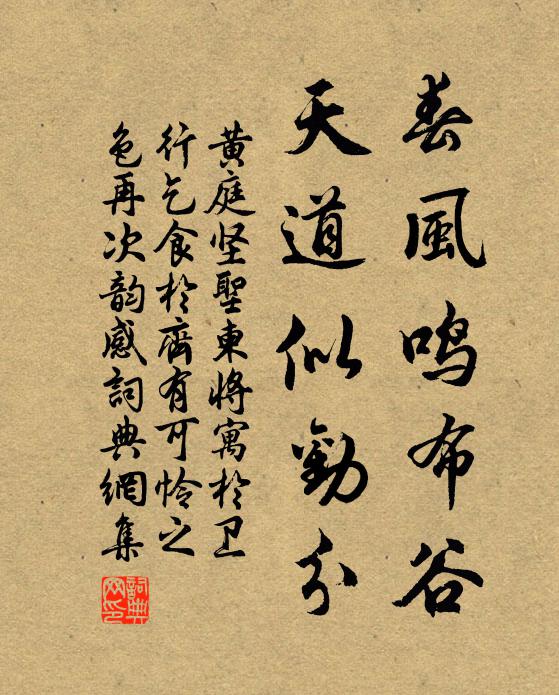 春風鸣布谷
天道似勸分
黄庭坚聖東將寓於卫
行乞食於齊有可怜之
色再次韵感詞典網集
詞典
网印